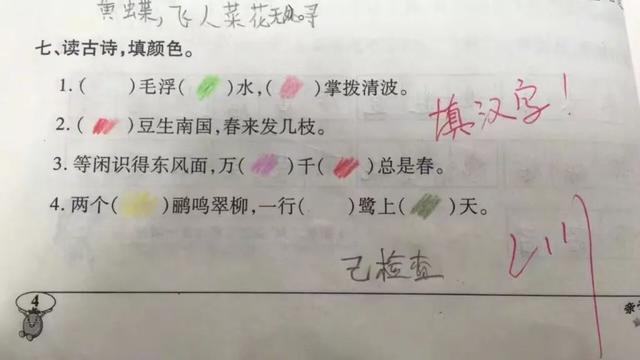 黄蝶，飞人菜花无处寻
七、读古诗，填颜色。
1. (　　)毛浮(　　)水，(　　)掌拨清波。
填汉字！
2. (　　)豆生南国，春来发几枝。
3. 等闲识得东风面，万(　　)千(　　)总是春。
4. 两个(　　)鹂鸣翠柳，一行(　　)鹭上(　　)天。
已检查
4